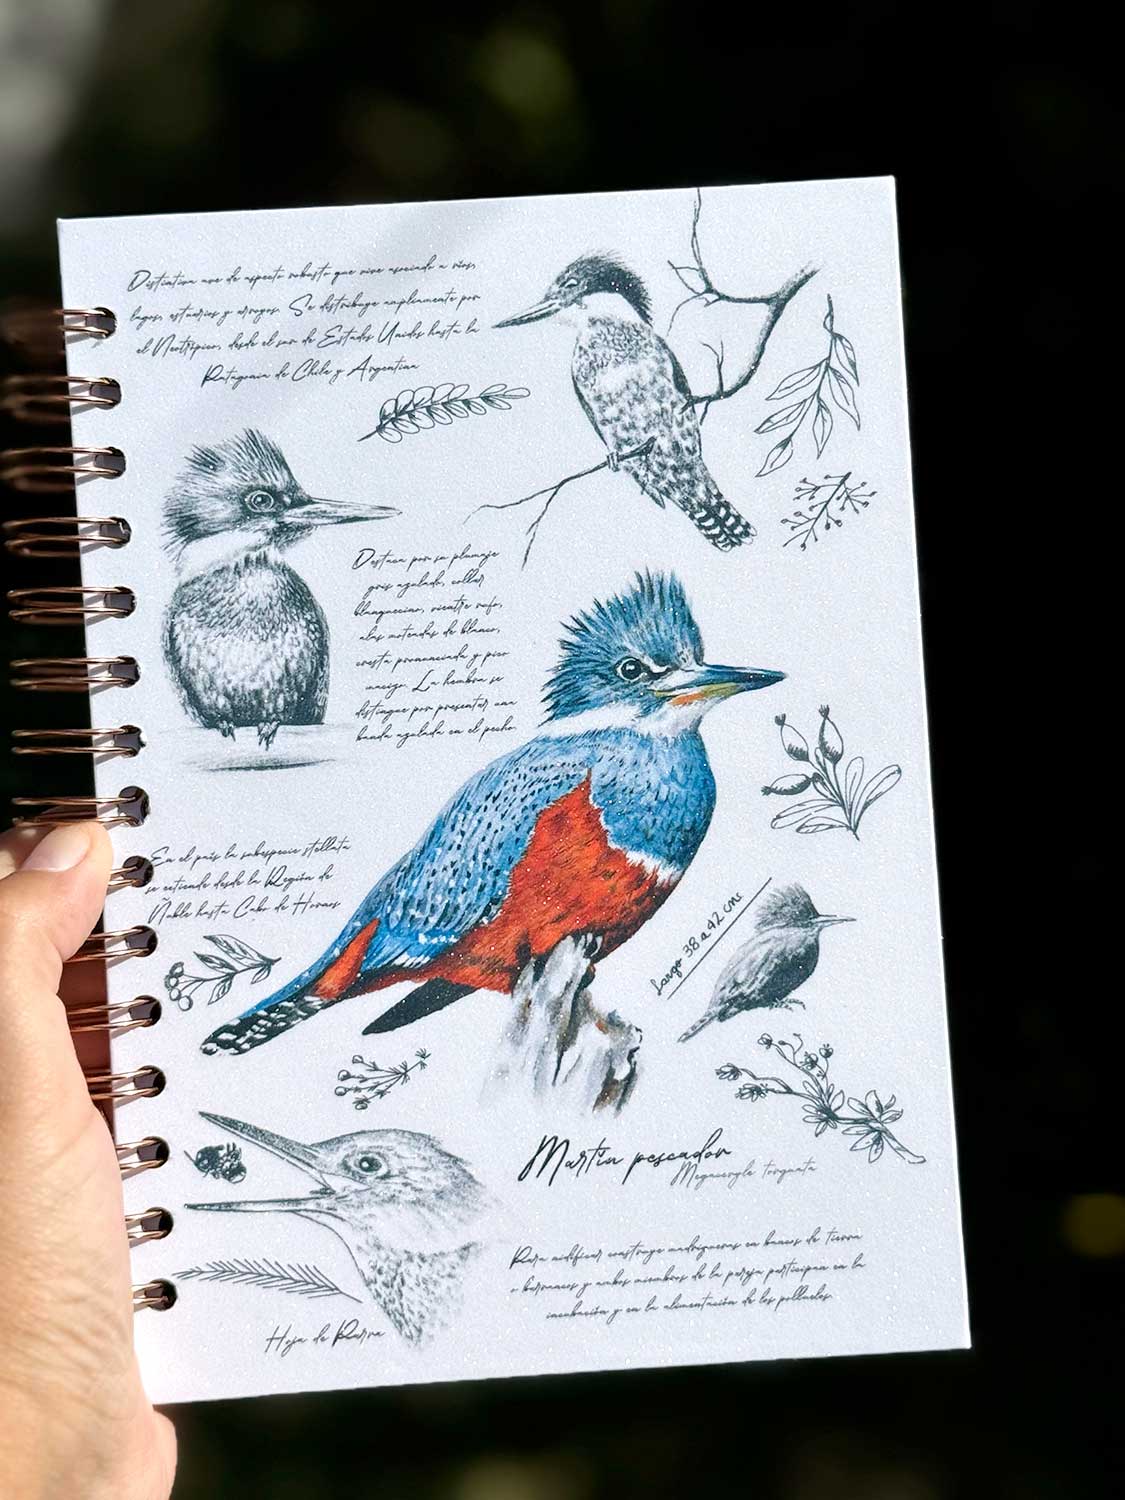 Distintiva ave de aspecto robusto que vive asociado a ríos,
lagos, estuarios y arroyos. Se distribuye ampliamente por
el Neotrópico, desde el sur de Estados Unidos hasta la
Patagonia de Chile y Argentina
Destaca por su plumaje
gris azulado, collar
blanquecino, vientre rufo,
alas moteadas de blanco,
cresta pronunciada y pico
macizo. La hembra se
distingue por presentar una
banda azulada en el pecho.
En el país la subespecie stellata
se extiende desde la Región de
Ñuble hasta Cabo de Hornos
Largo 38 a 42 cms
Martín pescador
Megaceryle torquata
Para nidificar construye madrigueras en bancos de tierra
o barrancos y ambos miembros de la pareja participan en la
incubación y en la alimentación de los polluelos.
Hoja de Parra